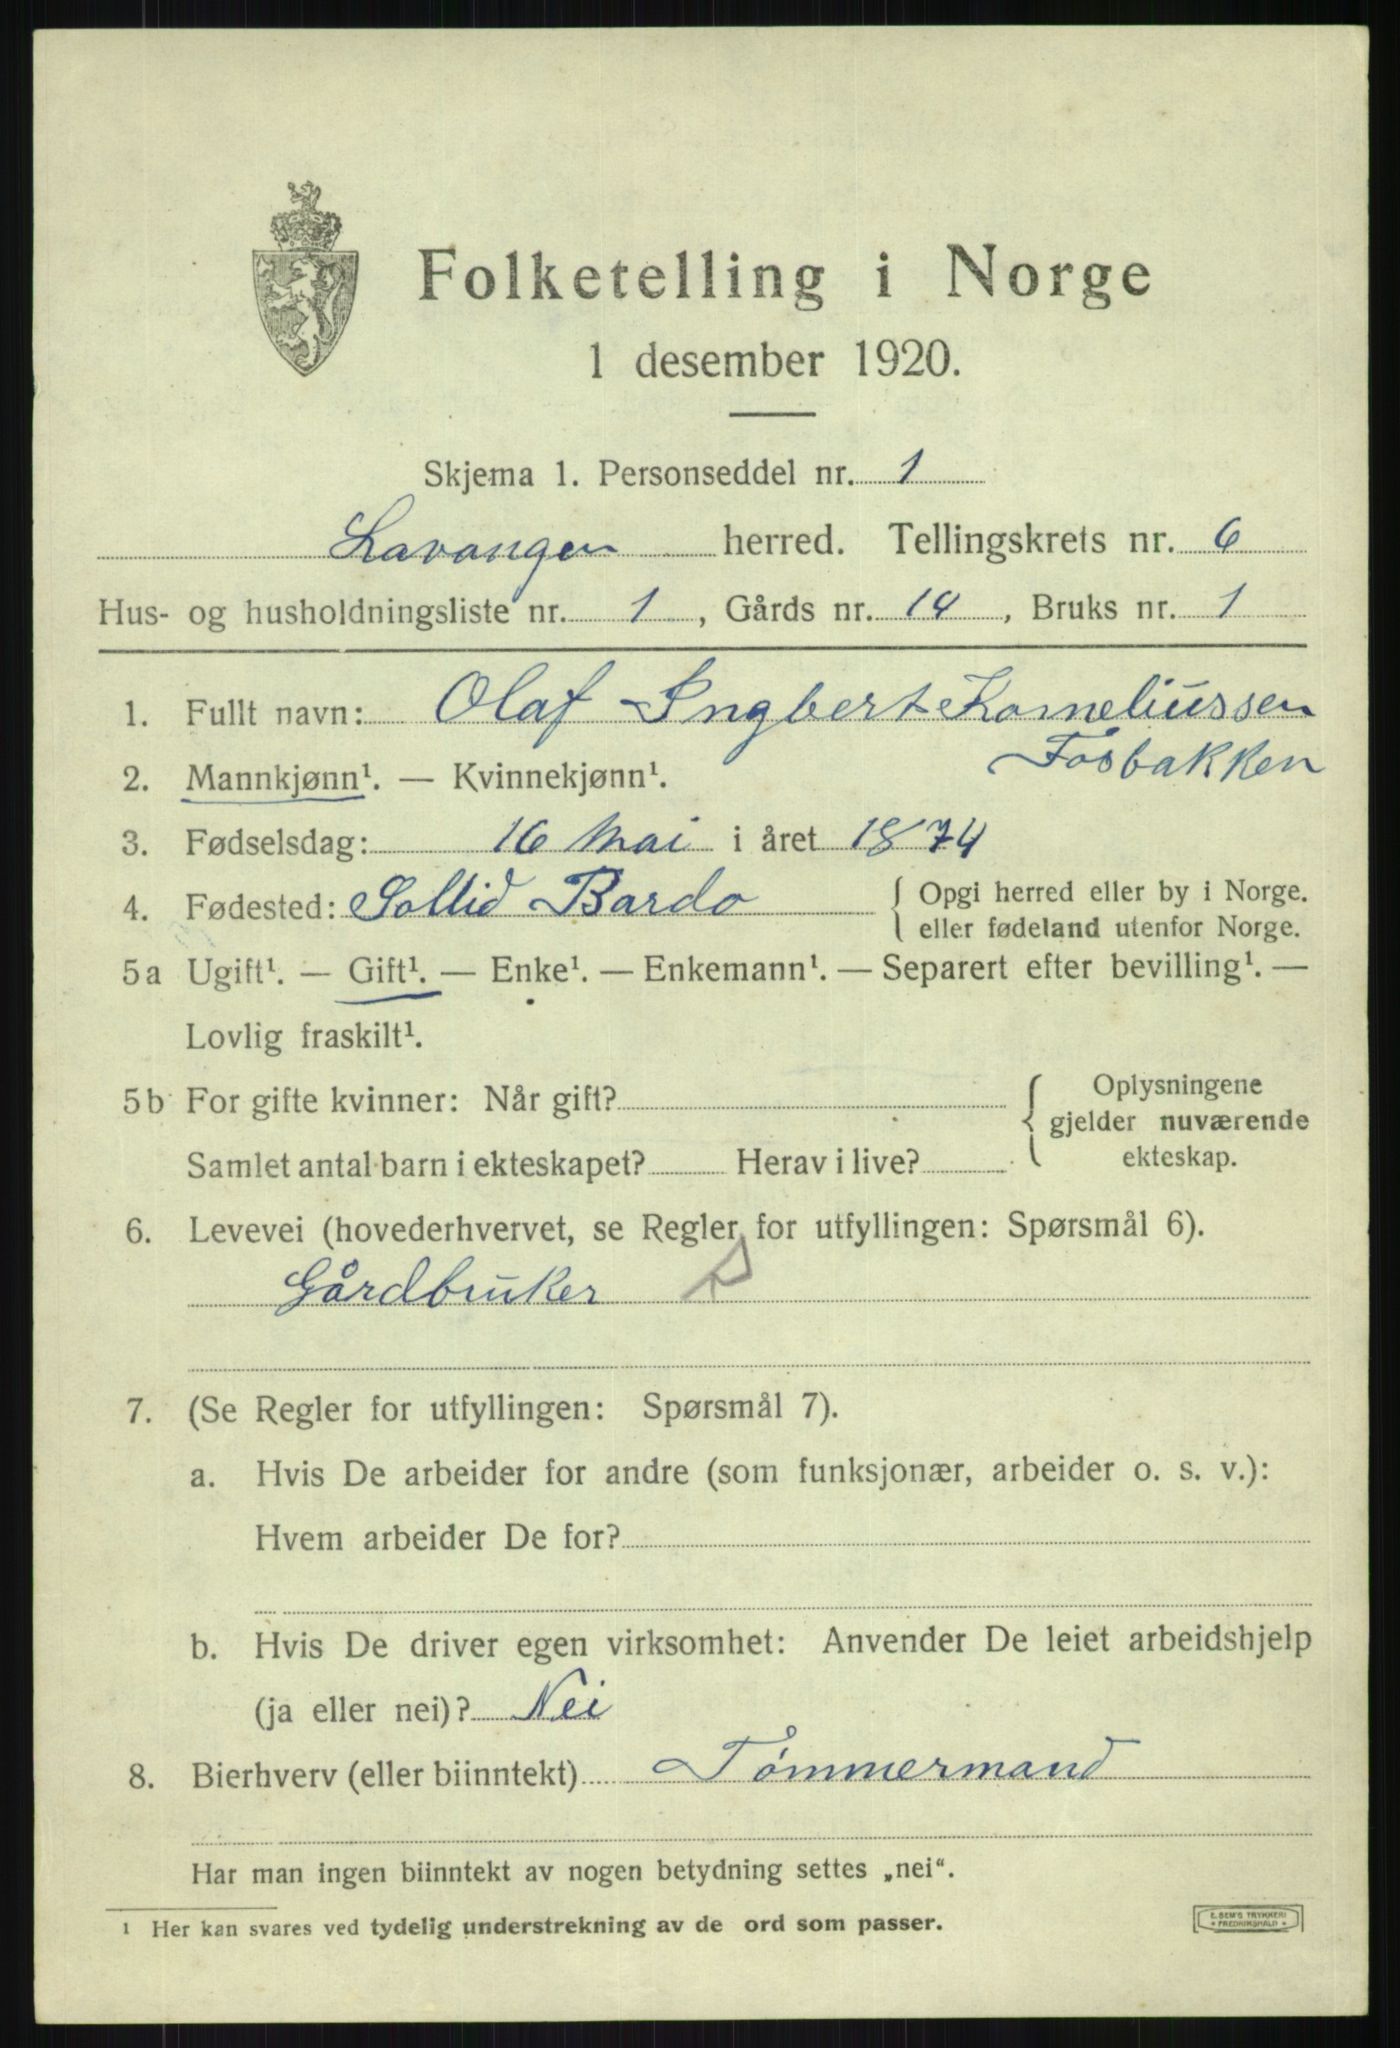 Folketelling i Norge
1 desember 1920.
Skjema 1. Personseddel nr. 1
Lavangen herred. Tellingskrets nr. 6
Hus- og husholdningsliste nr. 1, Gårds nr. 14, Bruks nr. 1
1. Fullt navn: Olaf Ingbert Korneliussen
Fosbakken
2. Mannkjønn¹. — Kvinnekjønn¹.
3. Fødselsdag: 16 Mai i året 1874
4. Fødested: Sollid Bardo { Opgi herred eller by i Norge.
eller fødeland utenfor Norge.
5a Ugift¹. — Gift¹. — Enke¹. — Enkemann¹. — Separert efter bevilling¹. —
Lovlig fraskilt¹.
5b For gifte kvinner: Når gift? { Oplysningene
gjelder nuværende
Samlet antal barn i ekteskapet? Herav i live? ekteskap.
6. Levevei (hovederhvervet, se Regler for utfyllingen: Spørsmål 6).
Gårdbruker
7. (Se Regler for utfyllingen: Spørsmål 7).
a. Hvis De arbeider for andre (som funksjonær, arbeider o. s. v.):
Hvem arbeider De for?
b. Hvis De driver egen virksomhet: Anvender De leiet arbeidshjelp
(ja eller nei)? Nei
8. Bierhverv (eller biinntekt) Tømmermand
Har man ingen biinntekt av nogen betydning settes „nei“.
¹ Her kan svares ved tydelig understrekning av de ord som passer.
E. SEM'S TRYKKERI
FREDRIKSHALD